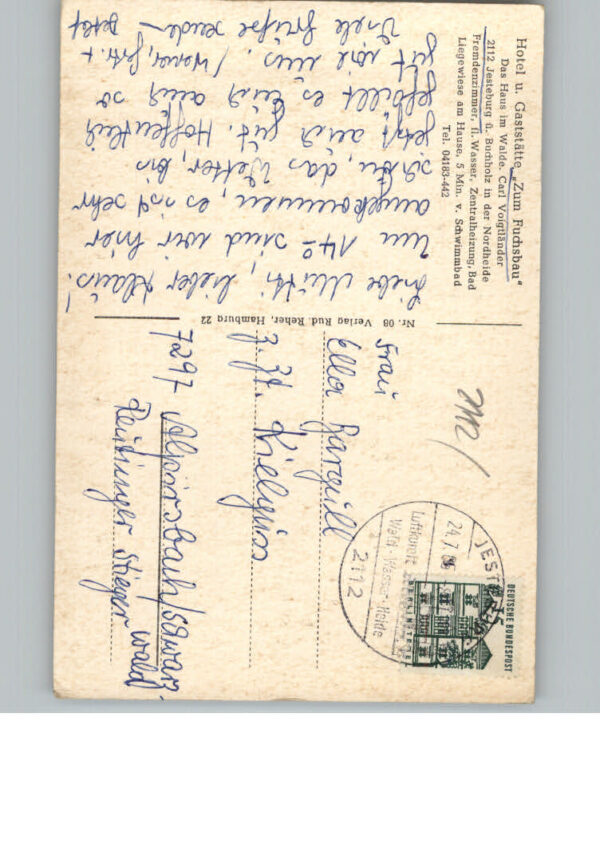 Hotel u. Gaststätte „Zum Fuchsbau"
Das Haus im Walde. Carl Voigtländer
2112 Jesteburg ü. Buchholz in der Nordheide
Fremdenzimmer, fl. Wasser, Zentralheizung, Bad
Liegewiese am Hause, 5 Min. v. Schwimmbad
Tel. 04183-442
Liebe Mutti, lieber Klaus!
Um 14° sind wir hier
angekommen, es ist sehr
schön, das Wetter, bis
jetzt auch gut. Hoffentlich
gefällt es Euch auch so
gut wie uns.
Viele Grüße senden
Werner, Gertr. +
Detlef
Nr. 08 Verlag Rud. Reher, Hamburg 22
2112/
DEUTSCHE BUNDESPOST
BERLIN TEGEL
JESTEBURG
24.7.
Luftkurort
Wald-Wasser-Heide
2112
Frau
Ella
z. Zt.
7297 Alpirsbach/Schwarz-
wald
Reutinger Steige